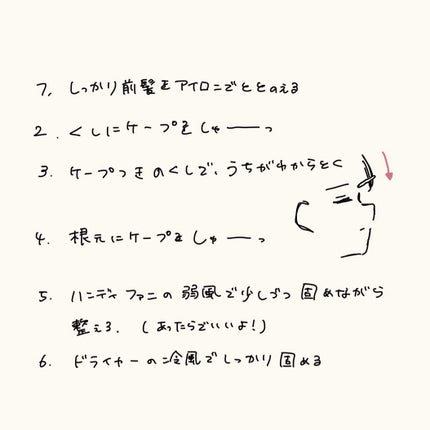 1. しっかり前髪をアイロンでととのえる
2. くしにケープをしゅーっ
3. ケープつきのくしで、うちがわからとく
4. 根元にケープをしゅーっ
5. ハンディファンの弱風で少しづつ固めながら
整える。(あったらでいいよ!)
6. ドライヤーの冷風でしっかり固める